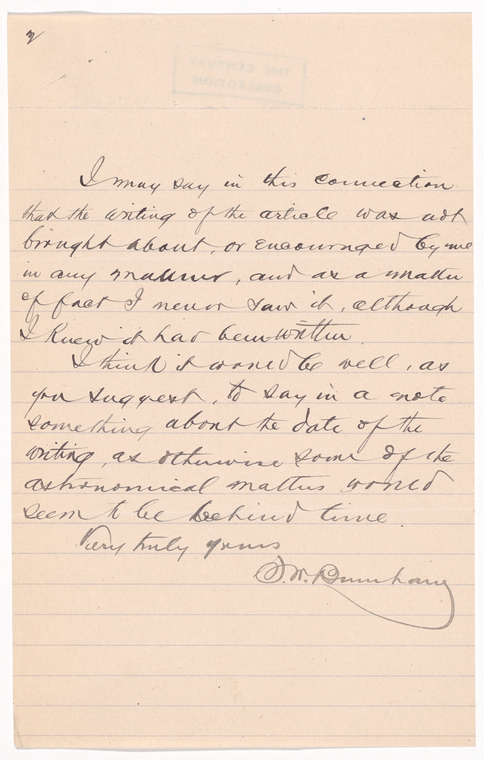 2
THE CENTURY
COLLECTION
I may say in this connection
that the writing of the article was not
brought about, or encouraged by me
in any manner, and as a matter
of fact I never saw it, although
I knew it had been written.
I think it would be well, as
you suggest, to say in a note
something about the date of the
writing, as otherwise some of the
astronomical matters would
seem to be behind time.
Very truly yours
S. W. Burnham